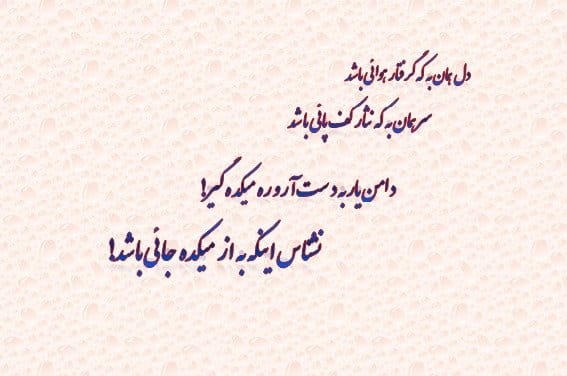 دل همان به که گرفتار هوائی باشد
سر همان به که نثار کف پائی باشد
دامن یار به دست آر و ره میکده گیر!
نشناس اینکه به از میکده جائی باشد!